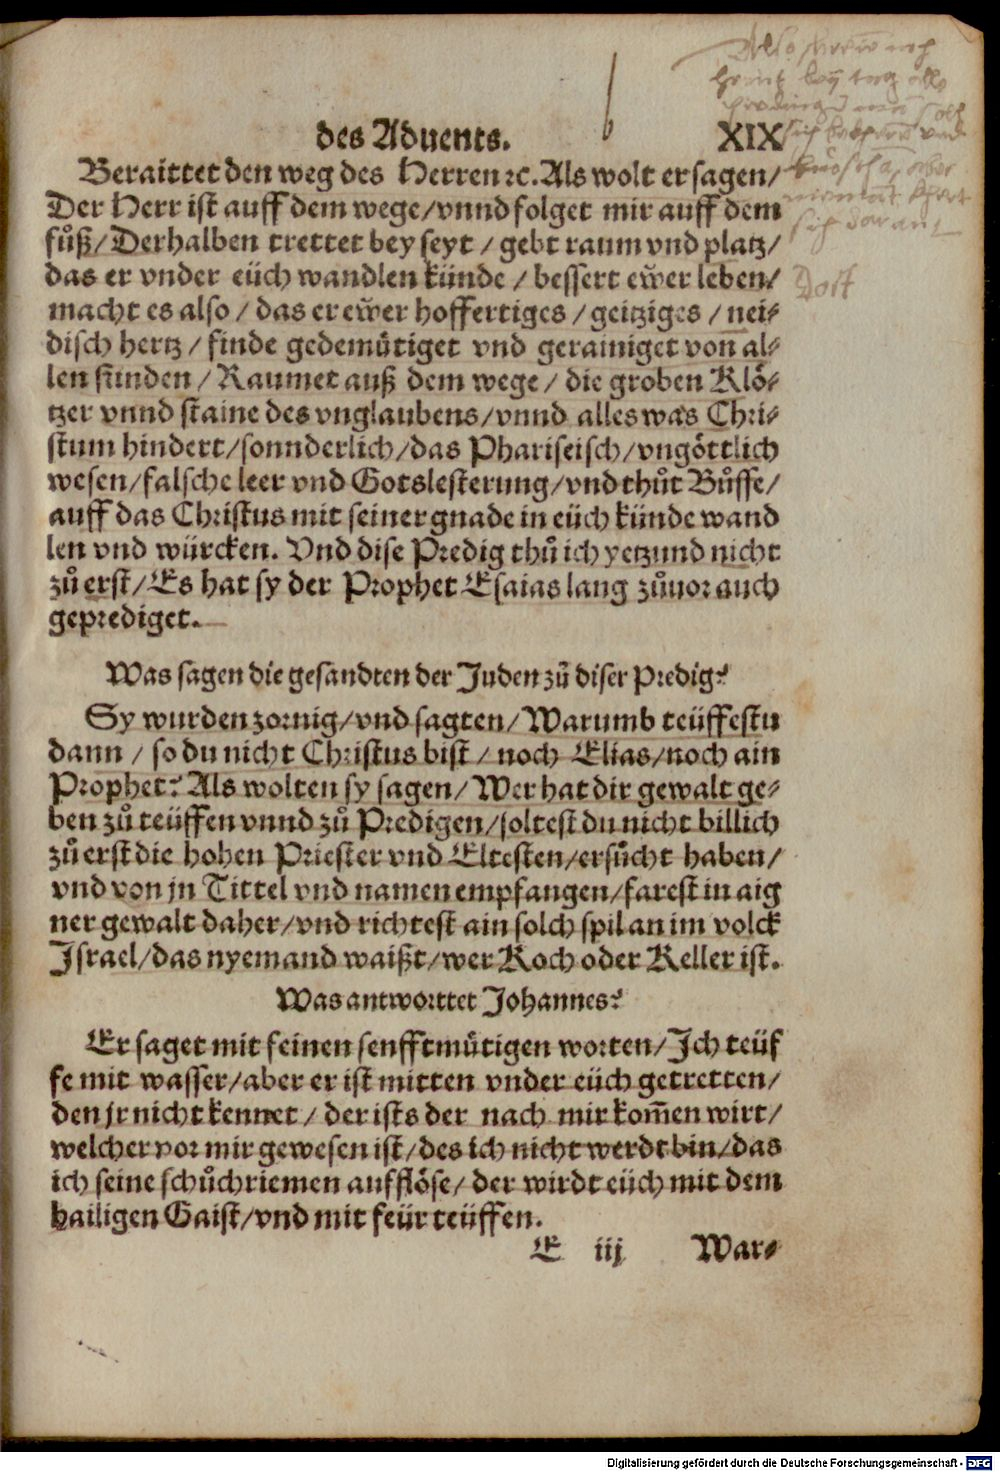 des Aduents. XIX
Beraittet den weg des Herren ꝛc. Als wolt er sagen/
Der Herr ist auff dem wege/vnnd folget mir auff dem
fůß/Derhalben trettet bey seyt / gebt raum vnd platz/
das er vnder eüch wandlen künde / bessert ew̎er leben/
macht es also / das er ew̎er hoffertiges / geitziges / nei⸗
disch hertz / finde gedemütiget vnd gerainiget von al⸗
len sünden / Raumet auß dem wege / die groben Klö⸗
tzer vnnd staine des vnglaubens/vnnd alles was Chri⸗
stum hindert/sonnderlich/das Phariseisch/vngöttlich
wesen/falsche leer vnd Gotslesterung/vnd thůt Bůsse/
auff das Christus mit seiner gnade in eüch künde wand
len vnd würcken. Vnd dise Predig thů ich yetzund nicht
zů erst/Es hat sy der Prophet Esaias lang zůuor auch
geprediget.
Was sagen die gesandten der Juden zů diser Predig?
Sy wurden zornig/vnd sagten/Warumb teüffestu
dann / so du nicht Christus bist / noch Elias/noch ain
Prophet? Als wolten sy sagen/Wer hat dir gewalt ge⸗
ben zů teüffen vnnd zů Predigen/soltest du nicht billich
zů erst die hohen Priester vnd Eltesten/ersůcht haben/
vnd von jn Tittel vnd namen empfangen/farest in aig
ner gewalt daher/vnd richtest ain solch spil an im volck
Israel/das nyemand waißt/wer Koch oder Keller ist.
Was antworttet Johannes?
Er saget mit feinen senfftmütigen worten/Ich teüf
fe mit wasser/aber er ist mitten vnder eüch getretten/
den jr nicht kennet / der ists der nach mir kom̄en wirt/
welcher vor mir gewesen ist/des ich nicht werdt bin/das
ich seine schůchriemen auffl̈öse/der wirdt eüch mit dem
hailigen Gaist/vnd mit feür teüffen.
E iij War⸗
Digitalisierung gefördert durch die Deutsche Forschungsgemeinschaft - DFG